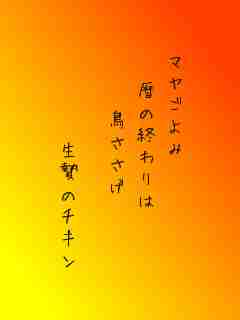 マヤごよみ
暦の終わりは
鳥ささげ
生贄のチキン